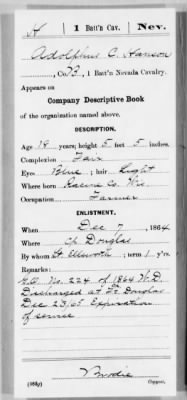 H 1 Batt'n Cav. Nev.
Adolphus C. Hanson
, Co. B, 1 Batt'n Nevada Cavalry.
Appears on
Company Descriptive Book
of the organization named above.
DESCRIPTION.
Age 19 years; height 5 feet 5 inches.
Complexion Fair
Eyes Blue; hair Light
Where born Racine Co. Wis
Occupation Farmer
ENLISTMENT.
When Dec 7, 1864
Where Cp Douglas
By whom Ellsworth; term 1 y'rs.
Remarks:
G.O. No. 224 of 1864 W.D.
Discharged at Ft Douglas
Dec 23/65 Expiration
of service
Copyist.